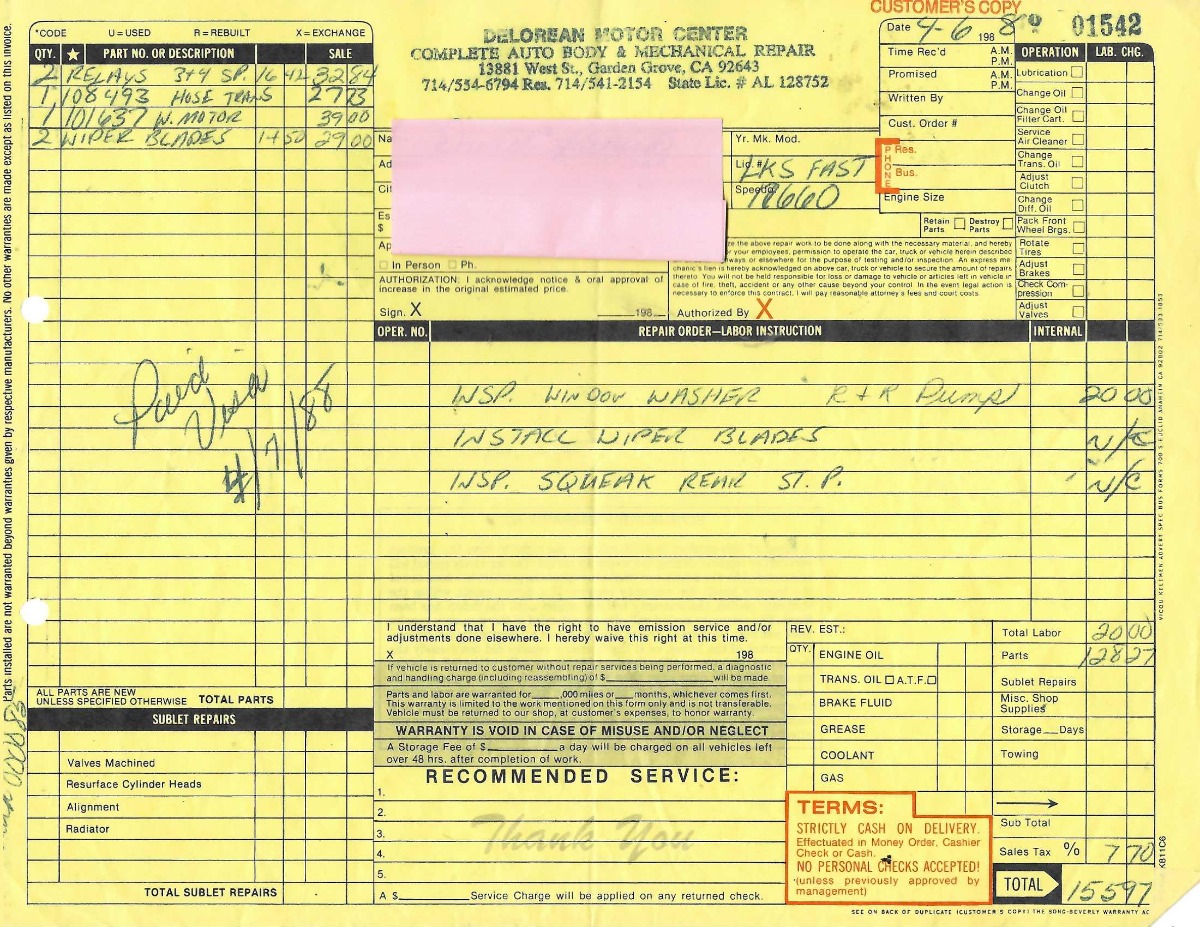 CUSTOMER'S COPY
*CODE U=USED R=REBUILT X=EXCHANGE
QTY. ★ PART NO. OR DESCRIPTION SALE
2 RELAYS 3+4 SP. 16 42 32 84
1 108493 HOSE TRANS 27 73
1 101637 W. MOTOR 39 00
2 WIPER BLADES 14 50 29 00
DELOREAN MOTOR CENTER
COMPLETE AUTO BODY & MECHANICAL REPAIR
13881 West St., Garden Grove, CA 92643
714/554-6794 Res. 714/541-2154 State Lic. # AL 128752
Date 4-6 198 8 01542
Time Rec'd A.M. P.M.
Promised A.M. P.M.
Written By
Cust. Order #
PHONE Res.
Bus.
Engine Size
Yr. Mk. Mod.
Lic. # LKS FAST
Speedo.
Na
Ad
Cit
Es
$
Ap
In Person Ph.
AUTHORIZATION: I acknowledge notice & oral approval of
increase in the original estimated price.
Sign. X 198
Retain Parts Destroy Parts
ze the above repair work to be done along with the necessary material, and hereby
or your employees, permission to operate the car, truck or vehicle herein described
ways or elsewhere for the purpose of testing and/or inspection. An express me
chanic's lien is hereby acknowledged on above car, truck or vehicle to secure the amount of repairs
thereto. You will not be held responsible for loss or damage to vehicle or articles left in vehicle in
case of fire, theft, accident or any other cause beyond your control. In the event legal action is
necessary to enforce this contract, I will pay reasonable attorney's fees and court costs.
Authorized By X
OPERATION LAB. CHG.
Lubrication
Change Oil
Change Oil Filter Cart.
Service Air Cleaner
Change Trans. Oil
Adjust Clutch
Change Diff. Oil
Pack Front Wheel Brgs.
Rotate Tires
Adjust Brakes
Check Compression
Adjust Valves
OPER. NO. REPAIR ORDER—LABOR INSTRUCTION INTERNAL
INSP. WINDOW WASHER R+R Pump 20 00
INSTALL WIPER BLADES N/C
INSP. SQUEAK REAR ST. P. N/C
Paid
Visa
4/7/88
ALL PARTS ARE NEW
UNLESS SPECIFIED OTHERWISE TOTAL PARTS
SUBLET REPAIRS
Valves Machined
Resurface Cylinder Heads
Alignment
Radiator
TOTAL SUBLET REPAIRS
I understand that I have the right to have emission service and/or
adjustments done elsewhere. I hereby waive this right at this time.
X 198
If vehicle is returned to customer without repair services being performed, a diagnostic
and handling charge (including reassembling) of $ will be made.
Parts and labor are warranted for ,000 miles or months, whichever comes first.
This warranty is limited to the work mentioned on this form only and is not transferable.
Vehicle must be returned to our shop, at customer's expenses, to honor warranty.
WARRANTY IS VOID IN CASE OF MISUSE AND/OR NEGLECT
A Storage Fee of $ a day will be charged on all vehicles left
over 48 hrs. after completion of work.
RECOMMENDED SERVICE:
1.
2.
3.
4.
5.
Thank You
A $ Service Charge will be applied on any returned check.
REV. EST.:
QTY. ENGINE OIL
TRANS. OIL A.T.F.
BRAKE FLUID
GREASE
COOLANT
GAS
TERMS:
STRICTLY CASH ON DELIVERY.
Effectuated in Money Order, Cashier
Check or Cash.
NO PERSONAL CHECKS ACCEPTED!
(unless previously approved by
management)
Total Labor 20 00
Parts 128 27
Sublet Repairs
Misc. Shop Supplies
Storage Days
Towing
Sub Total
Sales Tax % 7 70
TOTAL 155 97
SEE ON BACK OF DUPLICATE (CUSTOMER'S COPY) THE SONG-BEVERLY WARRANTY AC
Parts installed are not warranted beyond warranties given by respective manufacturers. No other warranties are made except as listed on this invoice.
KB11C6